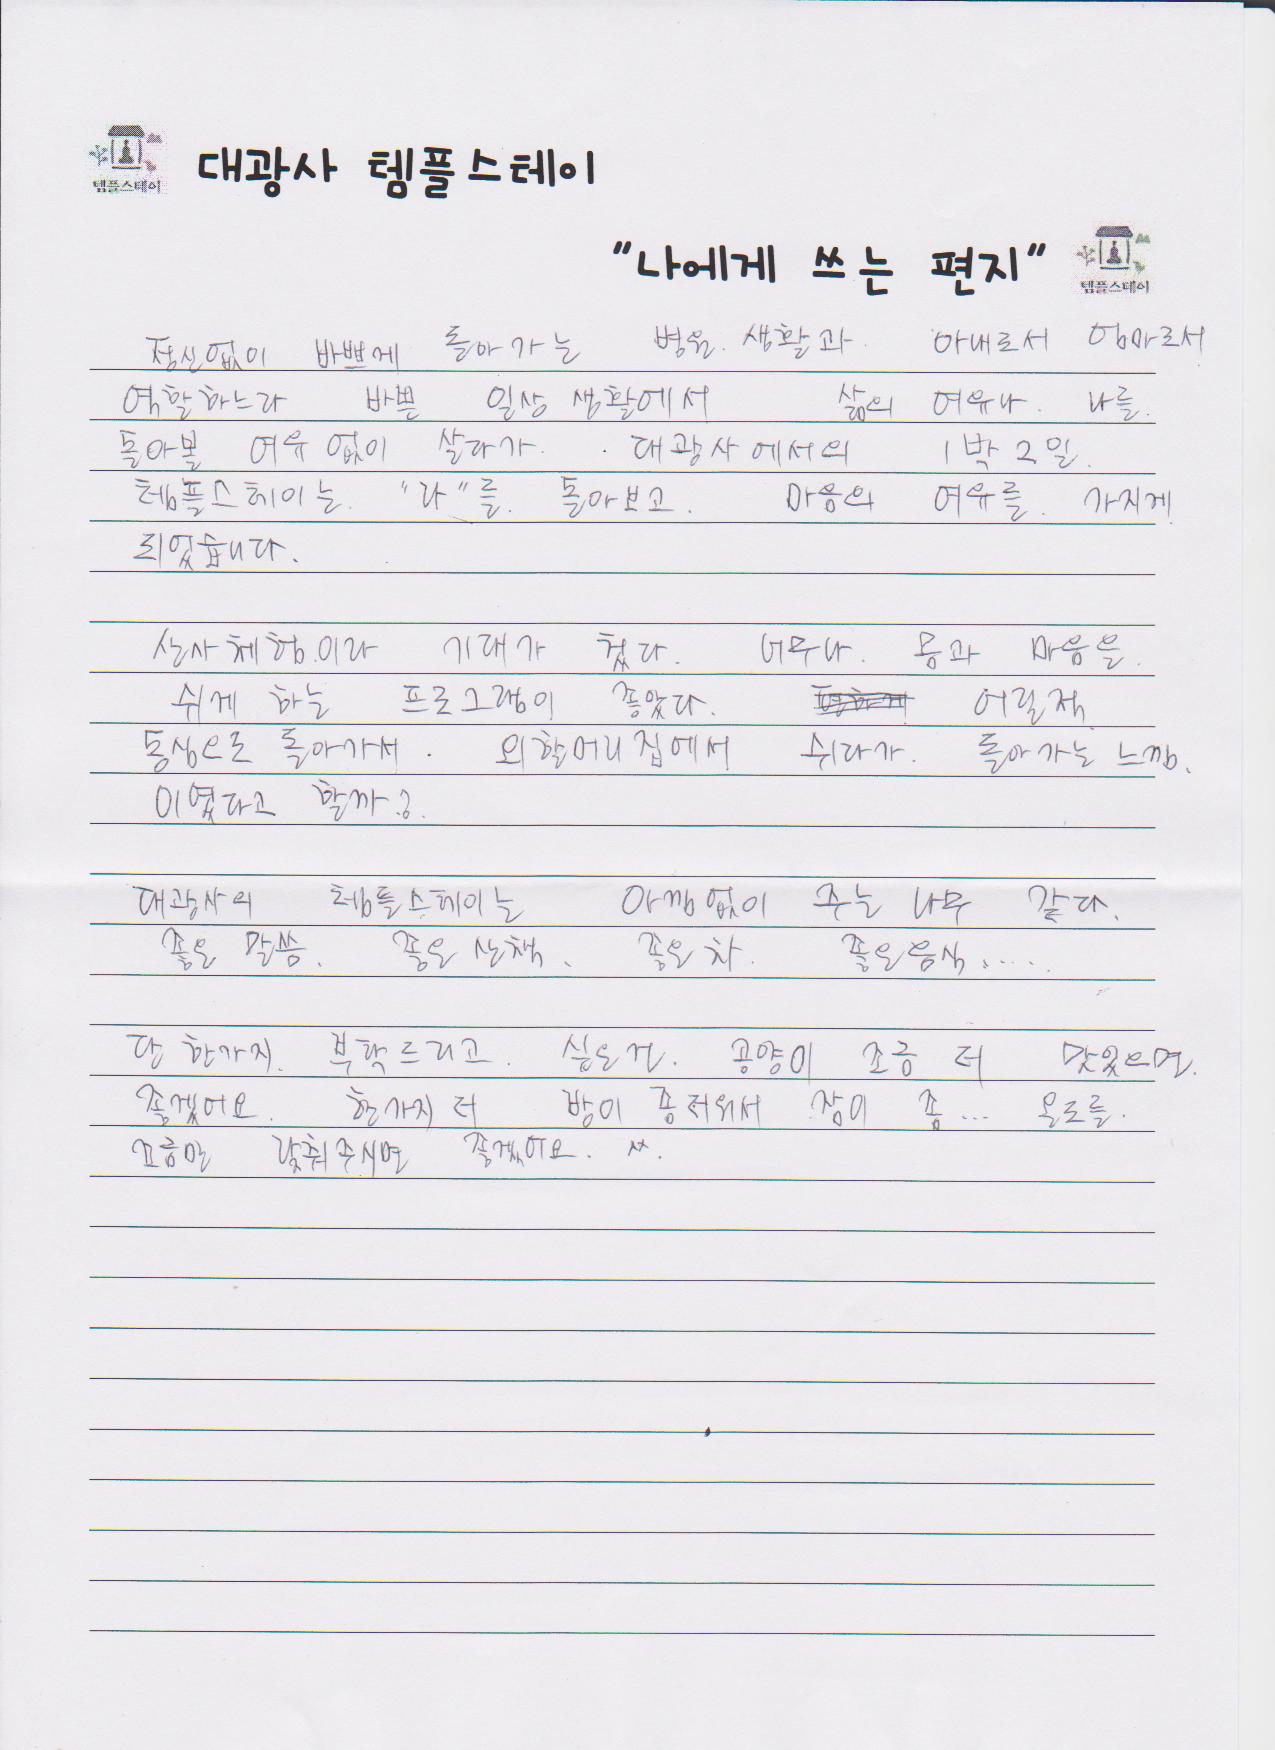 템플스테이
대광사 템플스테이
"나에게 쓰는 편지"
템플스테이
정신없이 바쁘게 돌아가는 병원. 생활과. 아내로서 엄마로서
역할하느라 바쁜 일상 생활에서 삶의 여유나. 나를.
돌아볼 여유 없이 살다가. . 대광사에서의 1박 2일.
템플스테이는. "나"를. 돌아보고. 마음의 여유를. 가지게
되었습니다.
산사체험.이라 기대가 컸다. 너무나. 몸과 마음을.
쉬게 하는 프로그램이 좋았다. 어릴적.
동심으로 돌아가서. 외할머니집에서 쉬다가. 돌아가는 느낌.
이였다고 할까?
대광사의 템플스테이는 아낌없이 주는 나무 같다.
좋은 말씀. 좋은 산책. 좋은 차. 좋은음식.....
단 한가지. 부탁드리고. 싶은건. 공양이 조금 더 맛있으면.
좋겠어요. 한가지 더 방이 좀 더워서 잠이 좀... 온도를.
조금만 낮춰주시면 좋겠어요. ^^.